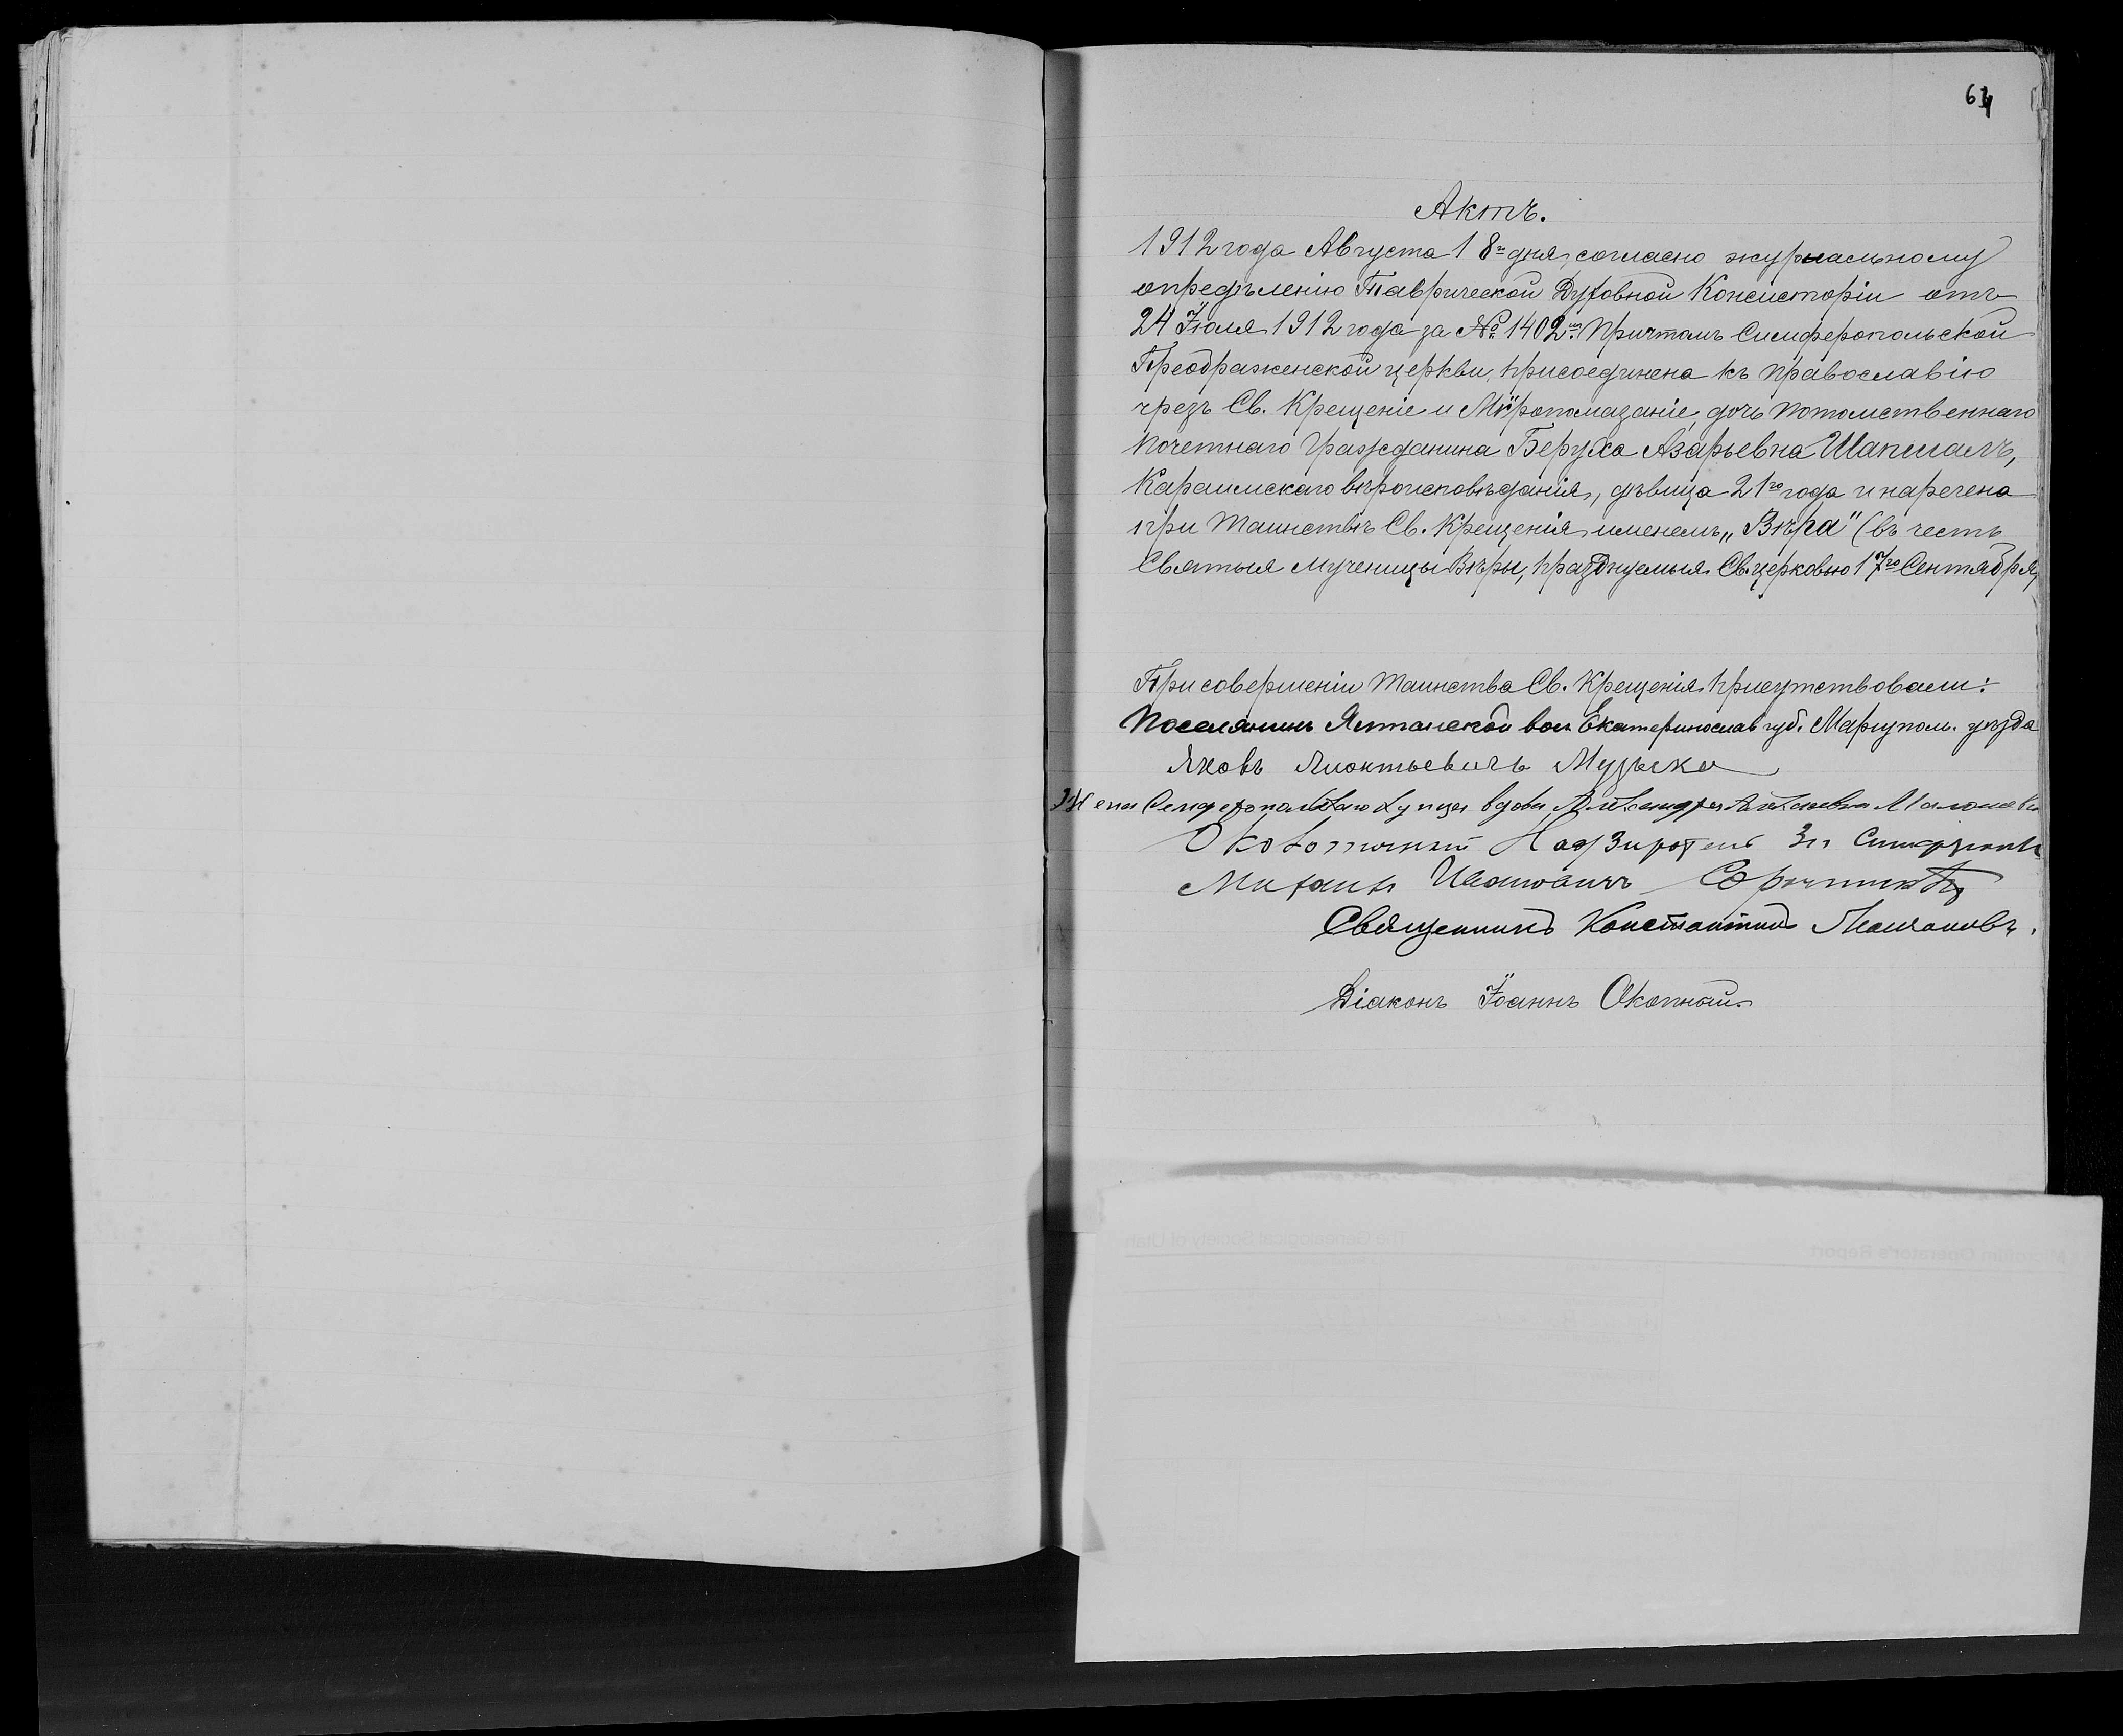 64
Актъ.
1912 года Августа 18го дня, согласно журнальному
опредѣленію Таврической Духовной Консисторіи отъ
24 Іюля 1912 года за № 1402мъ Причтомъ Симферопольской
Преображенской церкви, присоединена къ православію
чрезъ Св. Крещеніе и Мѵропомазаніе, дочь потомственнаго
почетнаго гражданина Беруха Азарьевна Шапшалъ,
Караимскаго вѣроисповѣданія, дѣвица 21го года и наречена
при Таинствѣ Св. Крещенія именемъ „Вѣра" (въ честь
Святыя мученицы Вѣры, празднуемыя Св. церковью 17го Сентября,
При совершеніи таинства Св. Крещенія присутствовали:
Поселянинъ Ялтанской вол. Екатеринослав. губ. Маріупол. уѣзда
Яковъ Леонтьевичъ Музыка
Жена Семферопольскаго купца вдова Александра
Околоточный Надзиратель
Михаилъ Ивановичъ
Священникъ Константинъ
Діаконъ Іоаннъ Окопный
The Genealogical Society of Utah
Microfilm Operator's Report